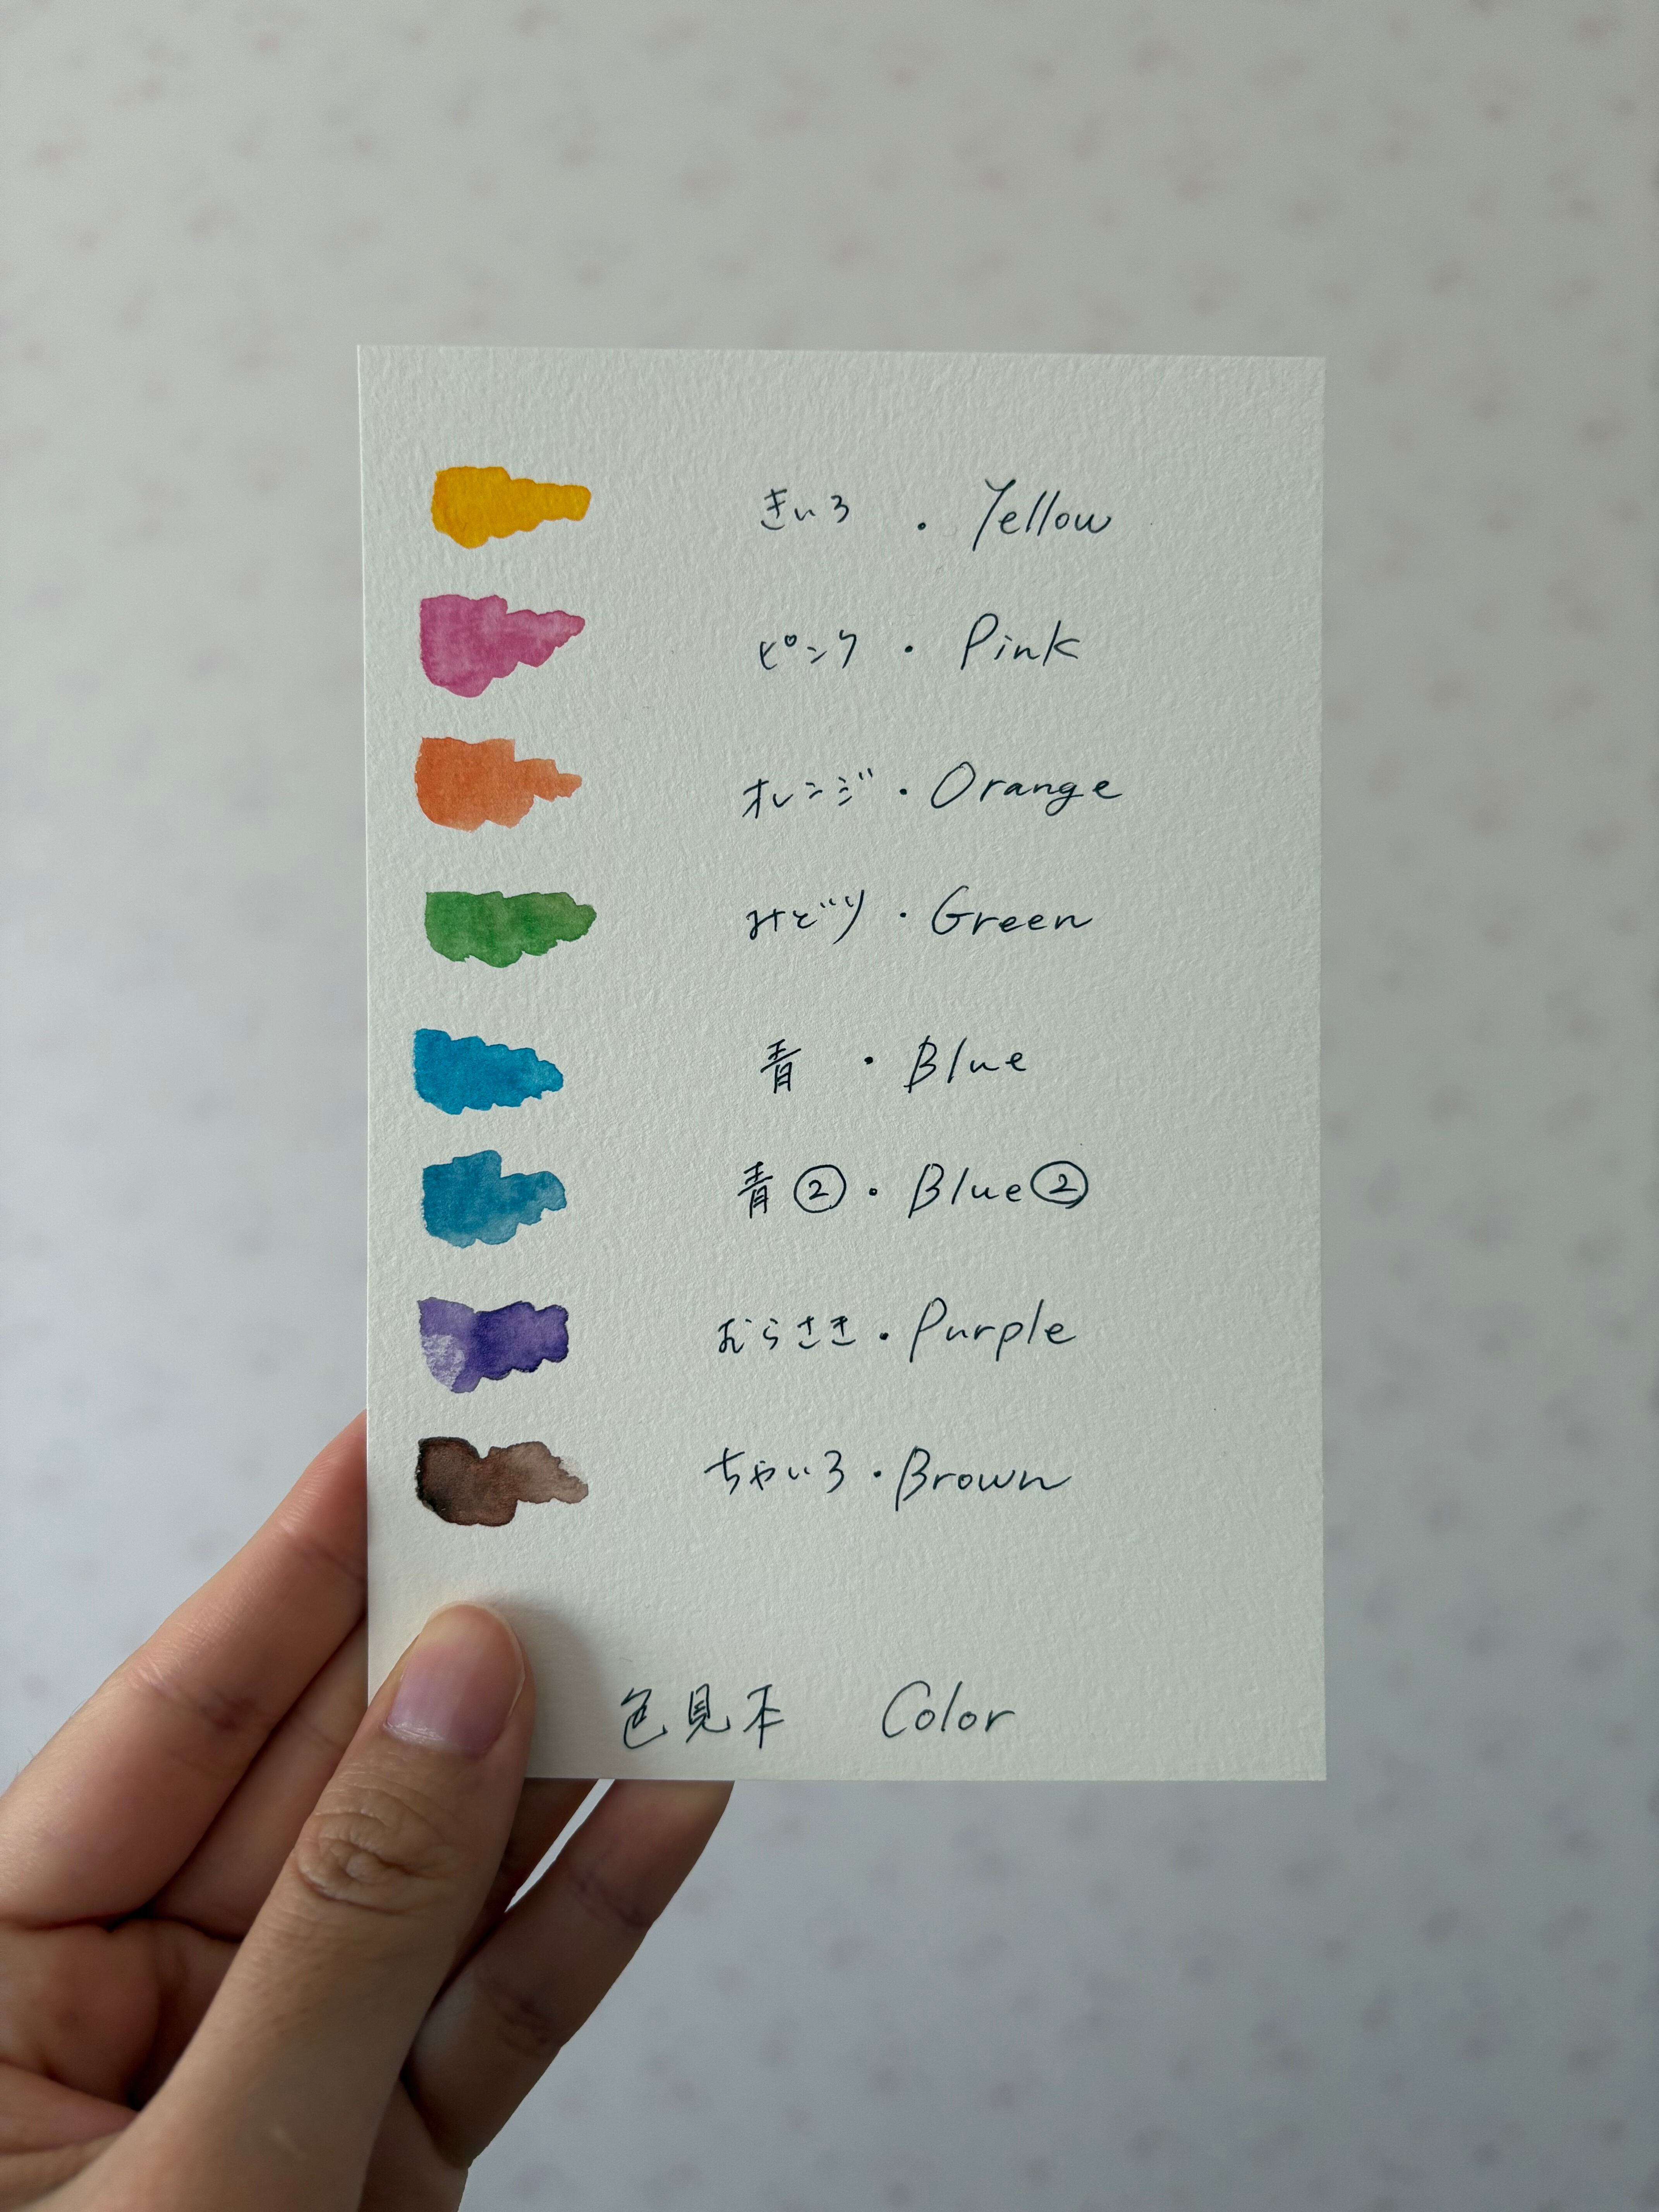 きいろ ・ Yellow
ピンク ・ Pink
オレンジ ・ Orange
みどり ・ Green
青 ・ Blue
青② ・ Blue②
むらさき ・ Purple
ちゃいろ ・ Brown
色見本 Color